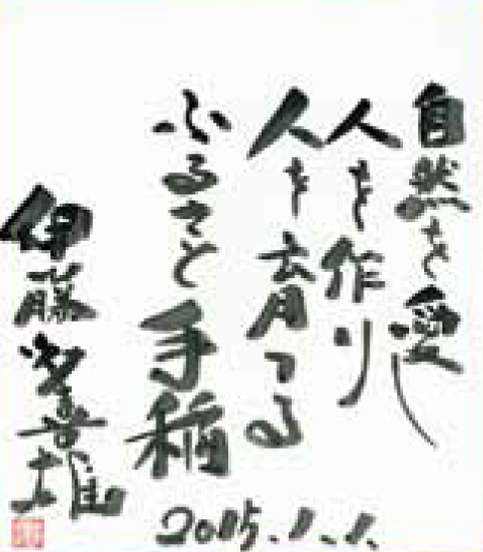 自然を愛し
人を作り
人を育てる
ふるさと手稲
2015.1.1.
伊藤 雄